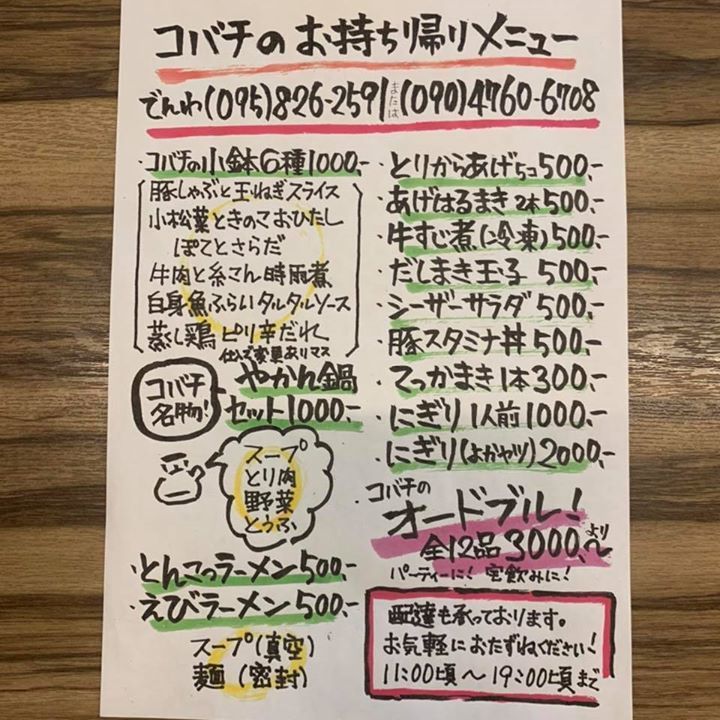 コバチのお持ち帰りメニュー
でんわ(095)826-2591または(090)4760-6708
・コバチの小鉢6種1000,-
豚しゃぶと玉ねぎスライス
小松菜ときのこおひたし
ぽてとさらだ
牛肉と糸こん時雨煮
白身魚ふらいタルタルソース
蒸し鶏ピリ辛だれ
仕入で変更ありマス
コバチ名物!
やかん鍋
セット1000,-
スープ
とり肉
野菜
とうふ
・とんこつラーメン500,-
・えびラーメン500,-
スープ(真空)
麺(密封)
・とりからあげ5コ500,-
・あげはるまき2本500,-
・牛すじ煮(冷凍)500,-
・だしまき玉子500,-
・シーザーサラダ500,-
・豚スタミナ丼500,-
・てっかまき1本300,-
・にぎり1人前1000,-
・にぎり(よかヤツ)2000,-
・コバチの
オードブル!
全12品3000,-より〜
パーティーに!宅飲みに!
配達も承っております。
お気軽におたずねください!
11:00頃〜19:00頃まで